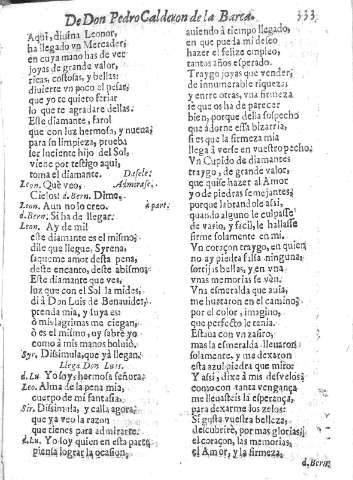 De Don Pedro Calderon de la Barca. 333
Aqui, diuina Leonor,
ha llegado vn Mercader,
en cuya mano has de ver
joyas de grande valor,
ricas, costosas, y bellas:
diuierte vn poco el pesar,
que yo te quiero feriar
lo que te agradare dellas.
Este diamante, farol
que con luz hermosa, y nueua,
para su limpieza, prueba
ser luciente hijo del Sol,
viene por testigo aqui,
toma el diamante. Dasele:
Leon. Què veo, Admirase.
Cielos! d. Bern. Dime.
Leon. Aun no lo creo. à part:
d. Bern. Si ha de llegar.
Leon. Ay de mi!
este diamante es el mismo:
dile que llegue, Syrena,
saqueme amor desta pena,
deste encanto, deste abismo:
Este diamante que ves,
luz que con el Sol la mides,
di à Don Luis de Benauides,
prenda mia, y suya es:
ò mis lagrimas me ciegan,
ò es el mismo, oy sabrè yo
como à mis manos boluiò.
Syr. Dissimula, que yà llegan.
Llega Don Luis.
d. Lu. Yo soy, hermosa señora.
Leo. Alma de la pena mia,
cuerpo de mi fantasia.
Sir. Dissimula, y calla agora,
que ya veo la razon
que tienes para admirarte.
d. Lu. Yo soy quien en esta parte
piensa lograr la ocasion,
auiendo à tiempo llegado,
en que pueda mi deseo
hazer el felize empleo,
tantos años esperado.
Traygo joyas que vender,
de innumerable riqueza:
y entre otras, vna firmeza
sè que os ha de parecer
bien, porque della sospecho
que adorne essa bizarria,
si es que la firmeza mia
llega à verse en vuestro pecho.
Vn Cupido de diamantes
traygo, de grande valor,
que quise hazer al Amor
yo de piedras semejantes;
porque labrandole assi,
quando alguno le culpasse
de vario, y facil, le hallasse
firme solamente en mi.
Vn coraçon traygo, en quien
no ay piedra falsa ninguna:
sortijas bellas, y en vna
vnas memorias se vèn.
Vna esmeralda que auia,
me hurtaron en el camino,
por el color, imagino,
que perfecto le tenia.
Estaua con vn zafiro,
mas la esmeralda lleuaron
solamente, y me dexaron
esta azul piedra que miro:
Y assi, dixe à mis desvelos
como con tanta vengança
me lleuasteis la esperança,
para dexarme los zelos:
Si gusta vuestra belleza,
descubrirè, por mas glorias,
el coraçon, las memorias,
el Amor, y la firmeza.
d. Bern.